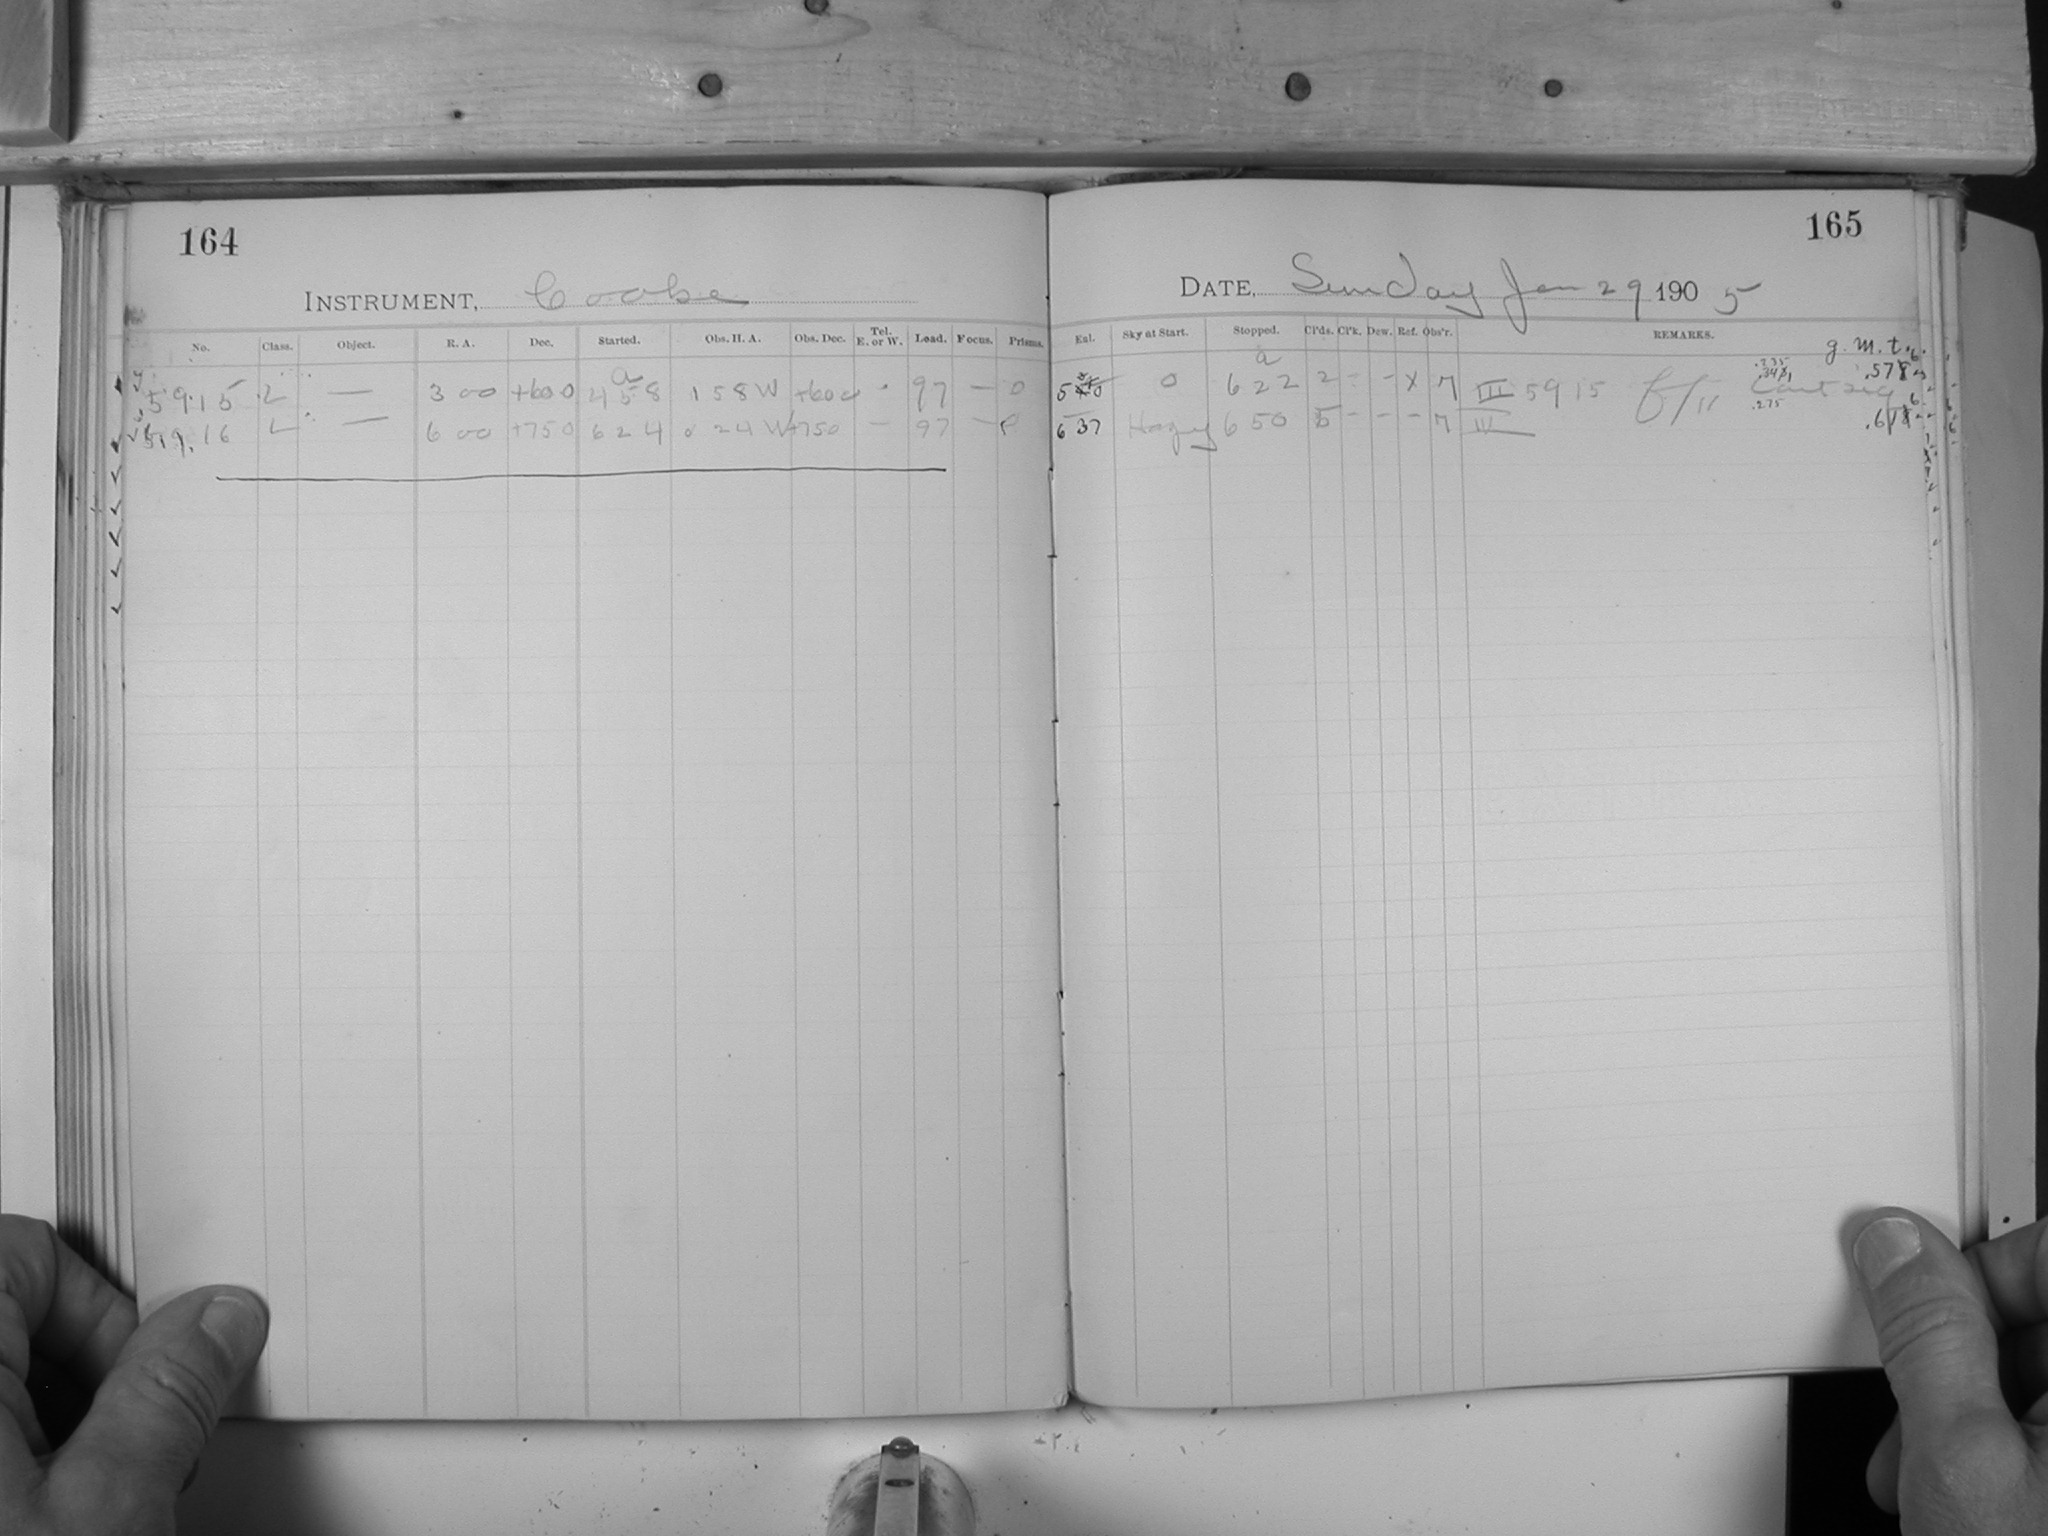 164
INSTRUMENT, Cooke
No. Class. Object. R. A. Dec. Started. Obs. H. A. Obs. Dec. Tel. E. or W. Load. Focus. Prisms.
a
5915 L — 3 00 +600 4 58 1 58 W +600 97 — 0
5916 L — 6 00 +750 6 24 0 24 W +750 — 97 —
165
DATE, Sunday Jan 29 1905
Exl. Sky at Start. Stopped. Cl'ds. Cl'k. Dew. Ref. Obs'r. REMARKS.
g. m. t.
a
0 6 22 2 - - x 7 III 5915
6 37 Hazy 6 50 5 - - - 7 IV